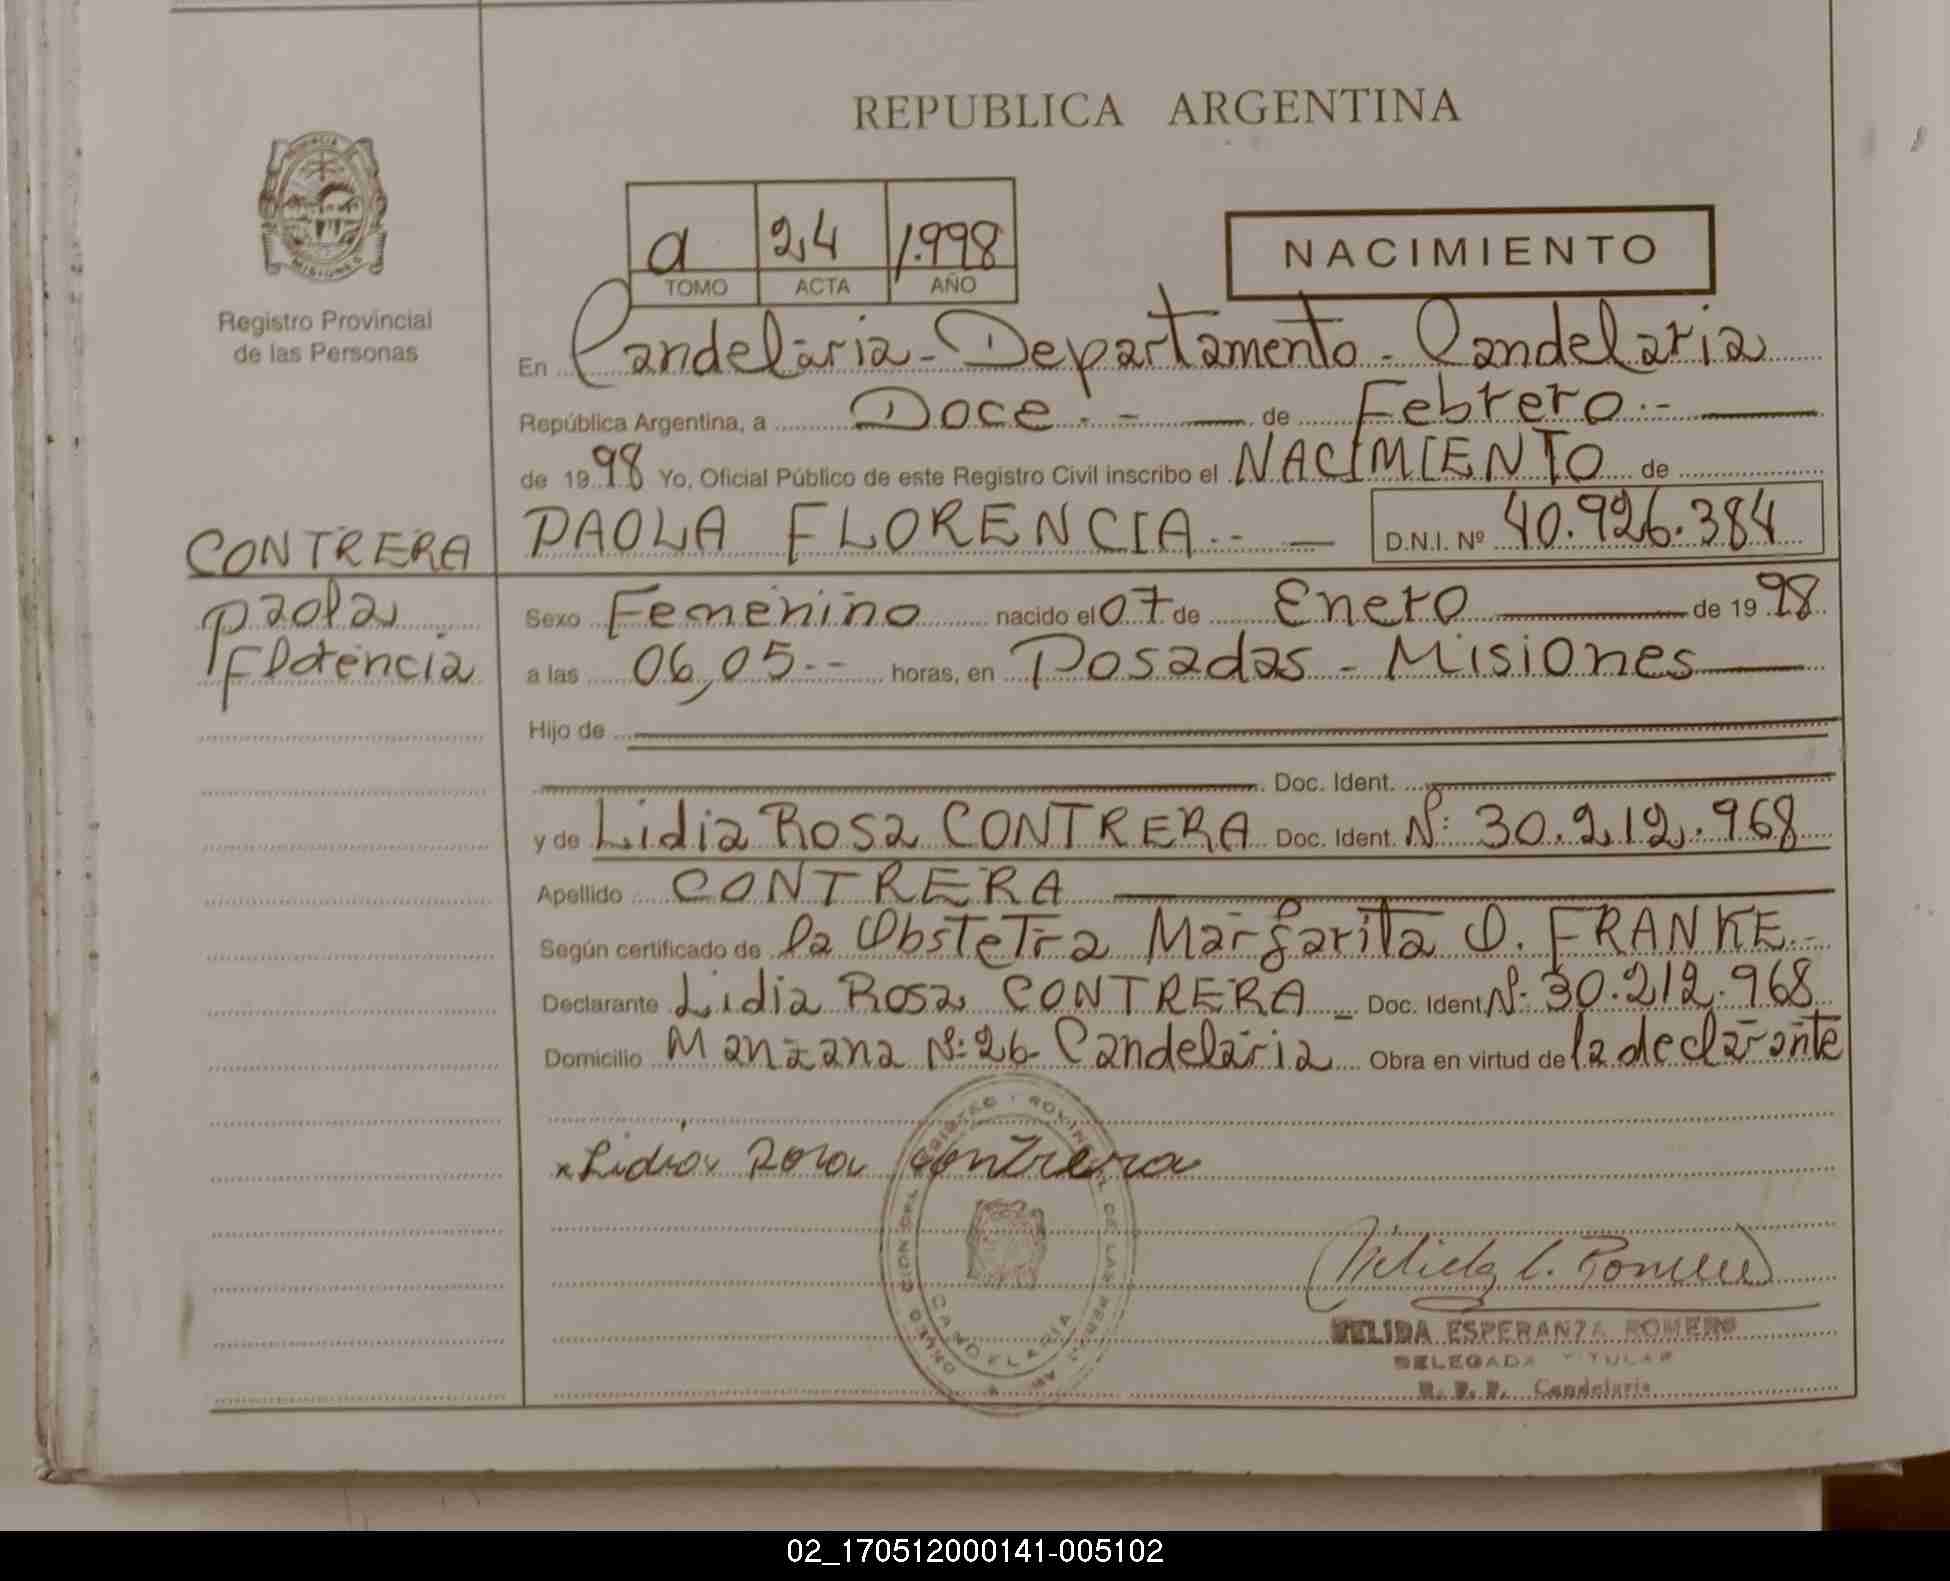 REPUBLICA ARGENTINA
PROVINCIA
MISIONES
Registro Provincial
de las Personas
a 24 1.998
TOMO ACTA AÑO
NACIMIENTO
En Candelaria - Departamento - Candelaria
República Argentina, a Doce.- — de Febrero.- —
de 1998 Yo, Oficial Público de este Registro Civil inscribo el NACIMIENTO de
PAOLA FLORENCIA.- — D.N.I. Nº 40.926.384
CONTRERA
Paola
Florencia
Sexo Femenino nacido el 07 de Enero — de 1998
a las 06,05.-- horas, en Posadas - Misiones —
Hijo de
Doc. Ident.
y de Lidia Rosa CONTRERA Doc. Ident. Nº: 30.212.968
Apellido CONTRERA —
Según certificado de la Obstetra Margarita O. FRANKE.-
Declarante Lidia Rosa CONTRERA - Doc. Ident. Nº: 30.212.968
Domicilio Manzana Nº: 26- Candelaria Obra en virtud de la declarante
x Lidia Rosa Contrera
CANDELARIA
NELIDA ESPERANZA ROMERO
DELEGADA TITULAR
R. P. P. Candelaria
02_170512000141-005102